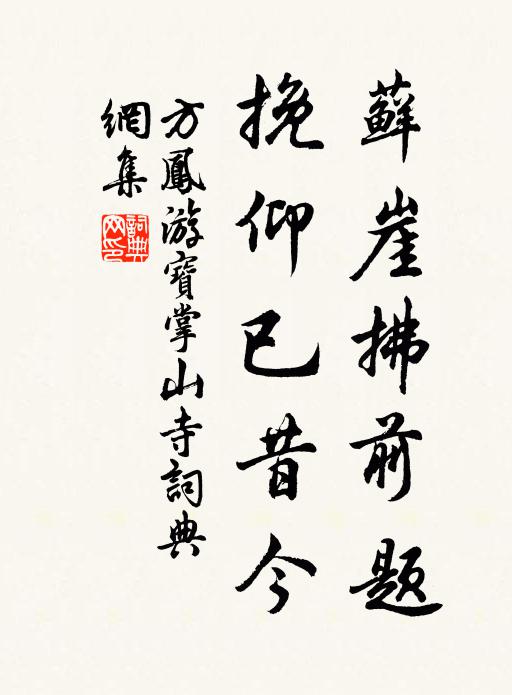 蘚崖拂前題
挽仰已昔今
方鳳游寶掌山寺詞典
網集
詞典網印